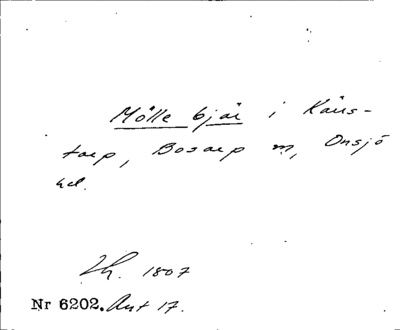 Mölle bjär i Käns-
tarp, Bosarp sn, Onsjö
hd.
Lh. 1807
Nr 6202. Ant 17.